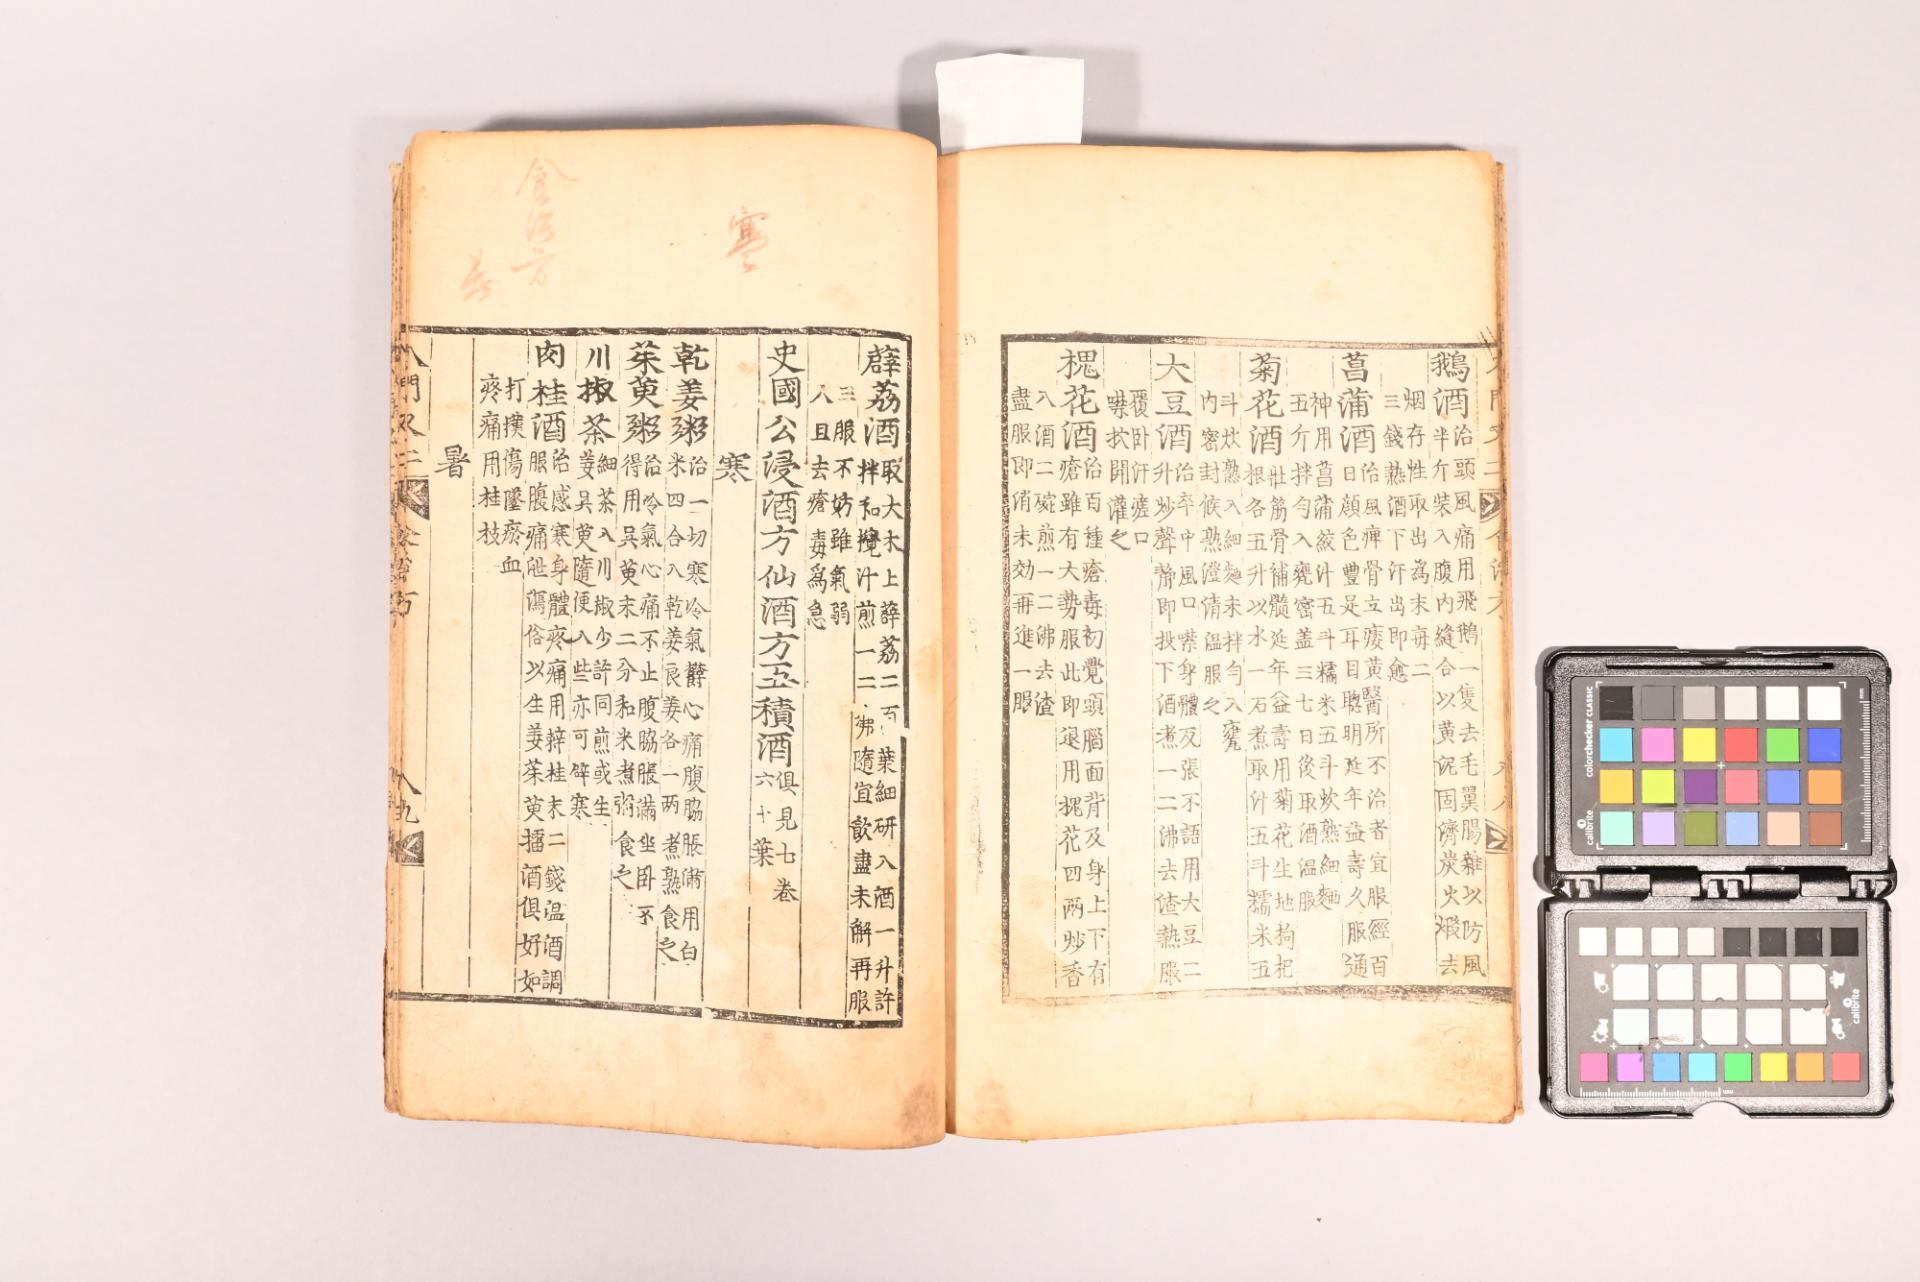 鵝酒治頭風痛用飛鵝一隻去毛翼腸雜以防風
半斤裝入腹內縫合以黃泥固濟炭火煅去
烟存性取出為末每二
三錢熱酒下汗出即愈
菖蒲酒治風痺骨立痿黃醫所不治者宜服經百
日顏色豐足耳目聰明延年益壽久服通
神用菖蒲絞汁五斗糯米五斗炊熟細麵
五斤拌勻入甕密盖三七日後取酒溫服
菊花酒壯筋骨補髓延年益壽用菊花生地狗杞
根各五升以水一石煮取汁五斗糯米五
斗炊熟入細麵末拌勻入甕
內密封候熟澄清溫服之
大豆酒治卒中風口噤身體反張不語用大豆二
升炒聲靜即投下酒煮一二沸去渣熱服
覆卧汗瘥口
噤扶開灌之
槐花酒治百種瘡毒初覺頭腦面背及身上下有
瘡雖有大勢服此即退用槐花四兩炒香
入酒二碗煎一二沸去渣
盡服即消未効再進一服
薜荔酒取大木上薜荔二百葉細研入酒一升許
拌和攪汁煎一二沸隨宜飲盡未解再服
三服不妨雖氣弱
人且去瘡毒爲急
史國公浸酒方仙酒方五積酒俱見七卷
六十葉
寒
乾姜粥治一切寒冷氣欝心痛腹脇脹滿用白
米四合入乾姜良姜各一兩煮熟食之
茱萸粥治冷氣心痛不止腹脇脹滿坐卧不
得用吳萸末二分和米煮粥食之
川椒茶細茶入川椒少許同煎或生
姜吳萸隨便入些亦可辟寒
肉桂酒治感寒身體疼痛用辢桂末二錢溫酒調
服腹痛泄瀉俗以生姜茱萸擂酒俱好如
打撲傷墜瘀血
疼痛用桂枝
暑
食治方
寒